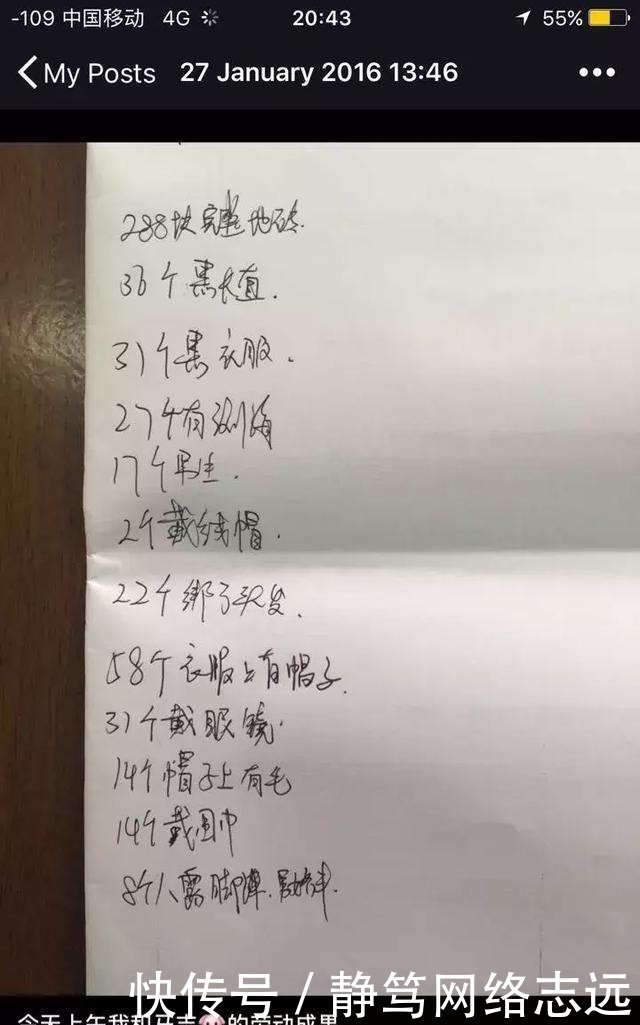 -109 中国移动 4G 20:43 55%
My Posts 27 January 2016 13:46
288块完整地砖.
36个黑长直.
31个黑衣服.
27个有刘海
17个男生.
2个戴线帽.
22个绑了头发.
58个衣服上有帽子.
31个戴眼镜.
14个帽子上有毛
14个戴围巾
8个人露脚踝.
快传号 / 静笃网络志远
今天上午我和 的劳动成果